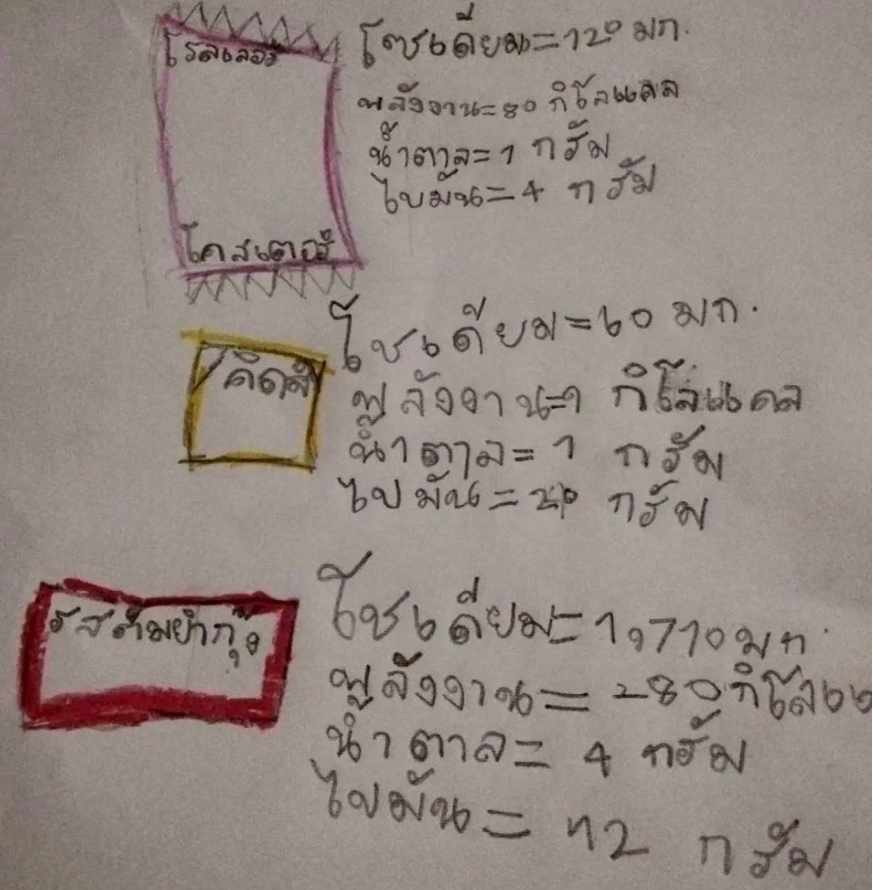 โรลเลอร์
โคสเตอร์
โซเดียม=120 มก.
พลังงาน=80 กิโลแคล
น้ำตาล=1 กรัม
ไขมัน=4 กรัม
คิดส์
โซเดียม=60 มก.
พลังงาน=1 กิโลแคล
น้ำตาล=1 กรัม
ไขมัน= กรัม
รสต้มยำกุ้ง
โซเดียม=1,710 มก.
พลังงาน=280 กิโลแ
น้ำตาล=4 กรัม
ไขมัน=12 กรัม